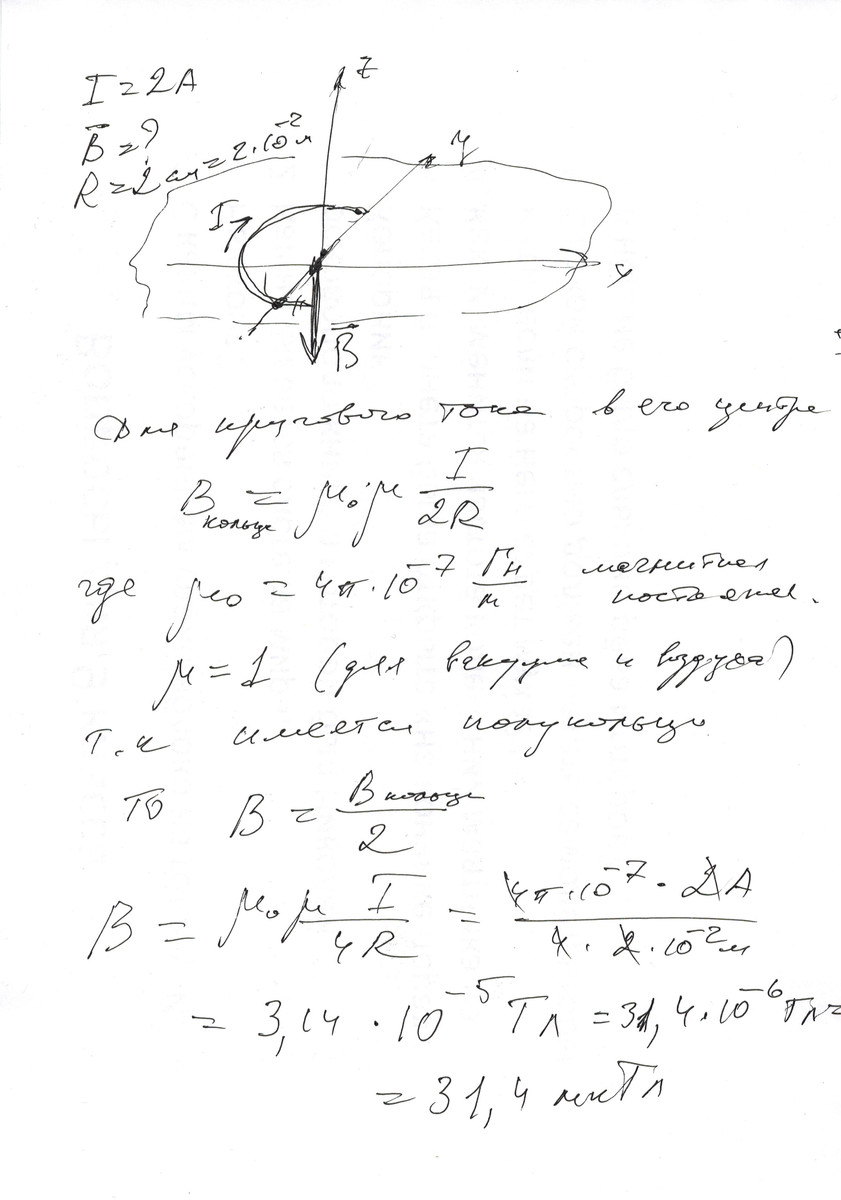 I = 2A
B̅ = ?
R = 2 см = 2·10⁻² м
Z
y
x
I
B̅
Для кругового тока в его центре
B кольца = μ₀·μ I/2R
где μ₀ = 4π·10⁻⁷ Гн/м магнитная постоянная.
μ = 1 (для вакуума и воздуха)
т.к имеется полукольцо
то B = B кольца/2
B = μ₀μ I/4R = 4π·10⁻⁷·2A/4·2·10⁻²м
= 3,14·10⁻⁵ Тл = 31,4·10⁻⁶ Тл =
= 31,4 мкТл